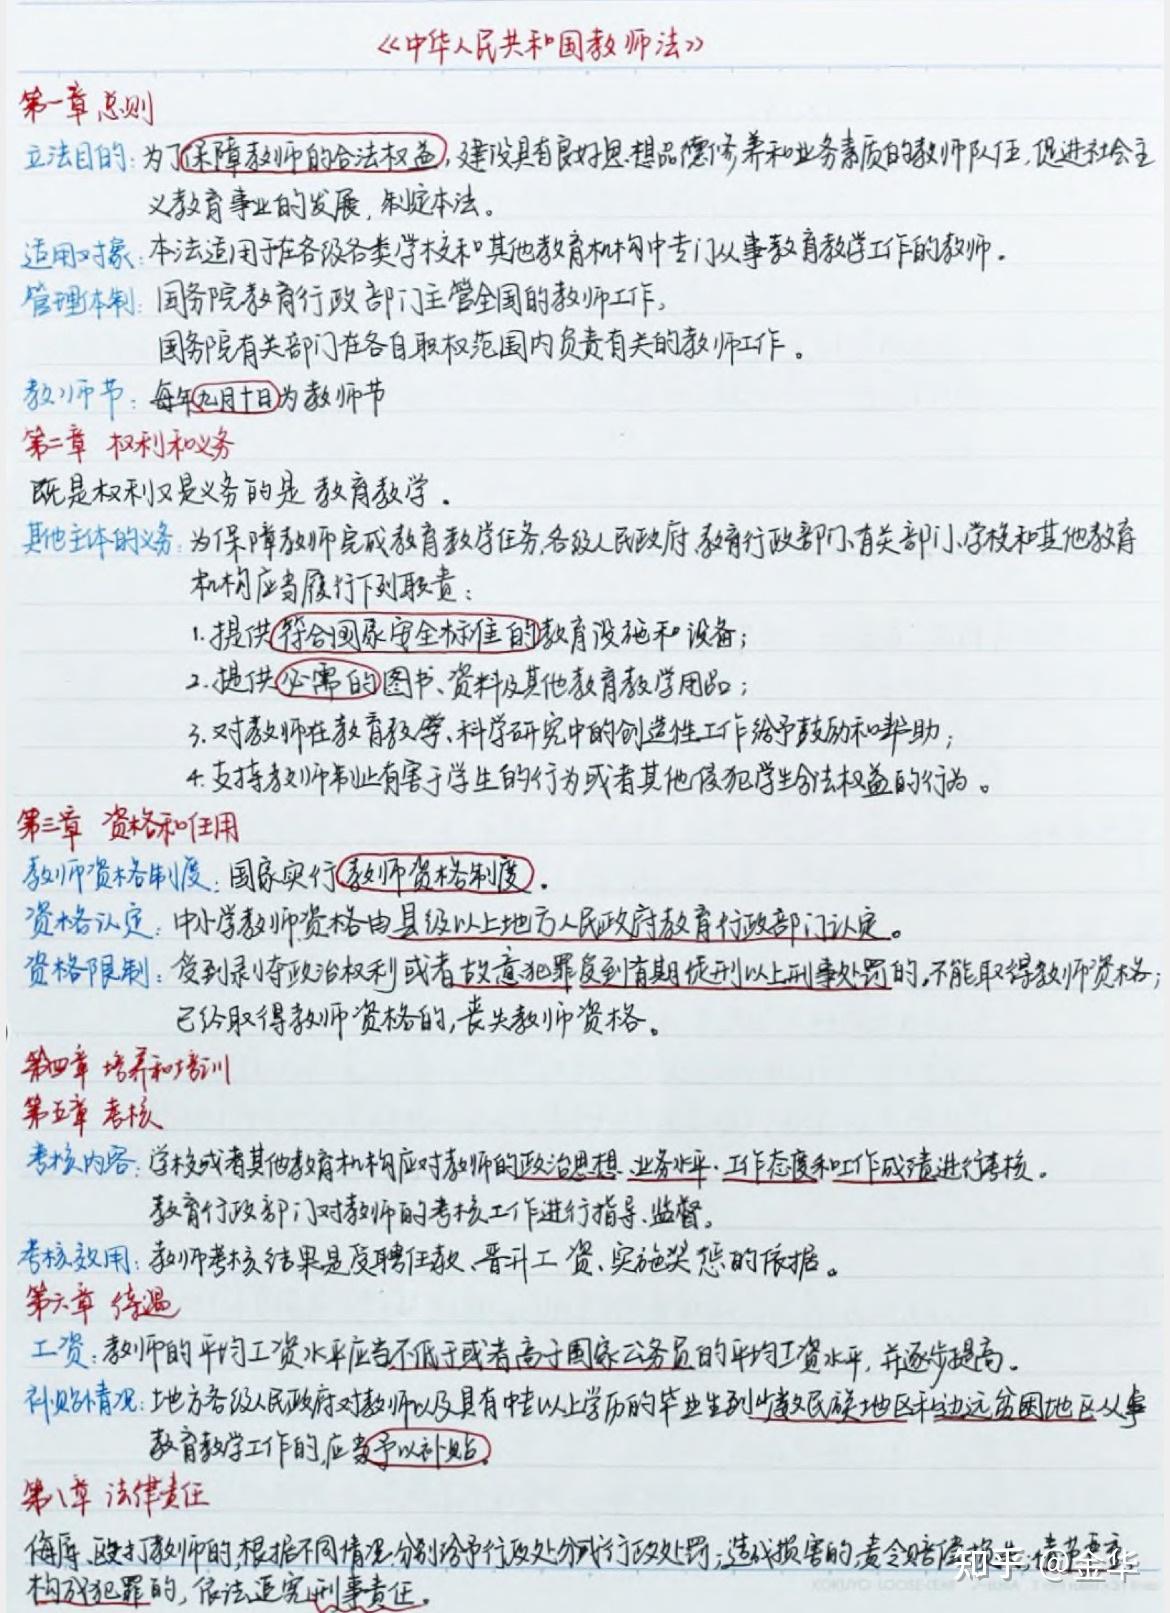 《中华人民共和国教师法》
第一章 总则
立法目的：为了保障教师的合法权益，建设具有良好思想品德修养和业务素质的教师队伍，促进社会主
义教育事业的发展，制定本法。
适用对象：本法适用于在各级各类学校和其他教育机构中专门从事教育教学工作的教师。
管理体制：国务院教育行政部门主管全国的教师工作。
国务院有关部门在各自职权范围内负责有关的教师工作。
教师节：每年九月十日为教师节
第二章 权利和义务
既是权利又是义务的是教育教学。
其他主体的义务：为保障教师完成教育教学任务，各级人民政府、教育行政部门、有关部门、学校和其他教育
机构应当履行下列职责：
1.提供符合国家安全标准的教育设施和设备；
2.提供必需的图书、资料及其他教育教学用品；
3.对教师在教育教学、科学研究中的创造性工作给予鼓励和帮助；
4.支持教师制止有害于学生的行为或者其他侵犯学生合法权益的行为。
第三章 资格和任用
教师资格制度：国家实行教师资格制度。
资格认定：中小学教师资格由县级以上地方人民政府教育行政部门认定。
资格限制：受到剥夺政治权利或者故意犯罪受到有期徒刑以上刑事处罚的，不能取得教师资格；
已经取得教师资格的，丧失教师资格。
第四章 培养和培训
第五章 考核
考核内容：学校或者其他教育机构应对教师的政治思想、业务水平、工作态度和工作成绩进行考核。
教育行政部门对教师的考核工作进行指导、监督。
考核效用：教师考核结果是受聘任教、晋升工资、实施奖惩的依据。
第六章 待遇
工资：教师的平均工资水平应当不低于或者高于国家公务员的平均工资水平，并逐步提高。
补贴情况：地方各级人民政府对教师以及具有中专以上学历的毕业生到少数民族地区和边远贫困地区从事
教育教学工作的，应当予以补贴。
第八章 法律责任
侮辱、殴打教师的，根据不同情况，分别给予行政处分或行政处罚；造成损害的，责令赔偿损失；情节严重
构成犯罪的，依法追究刑事责任。
知乎 @金华
KOKUYO LOOSE-LEAF